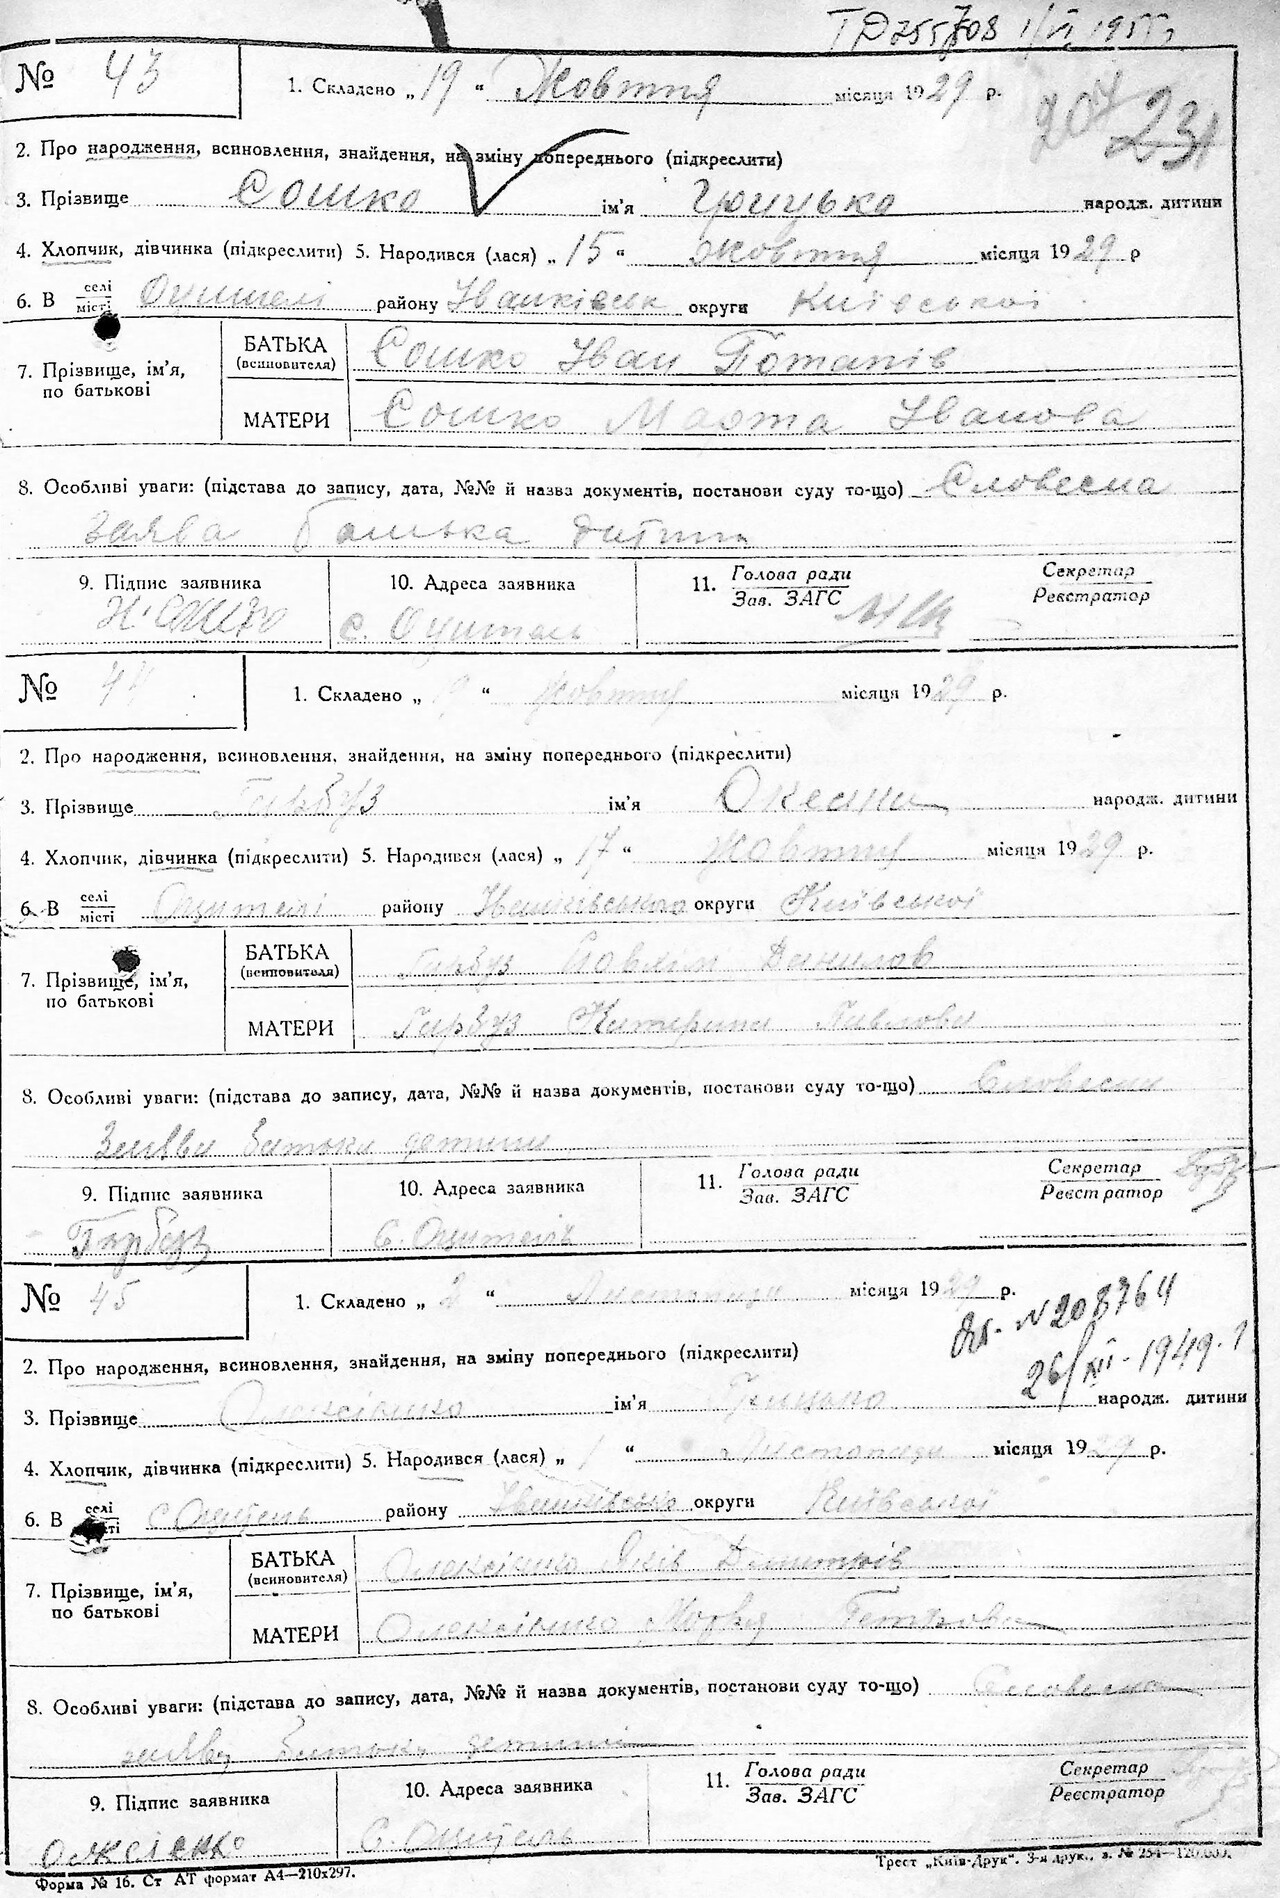 ТД 255708 1/VI 1955
№ 43
1. Складено „ 19 “ Жовтня місяця 1929 р.
207 231
2. Про народження, всиновлення, знайдення, на зміну попереднього (підкреслити)
3. Прізвище Сошко ім'я Грицько народж. дитини
4. Хлопчик, дівчинка (підкреслити) 5. Народився (лася) „ 15 “ Жовтня місяця 1929 р
6. В селі/місті Оцителі району Іванківськ округи Київської
7. Прізвище, ім'я, по батькові
БАТЬКА (всиновителя) Сошко Іван Потапів
МАТЕРИ Сошко Марта Іванова
8. Особливі уваги: (підстава до запису, дата, №№ й назва документів, постанови суду то-що) Словесна
заява батька дитини
9. Підпис заявника 10. Адреса заявника 11. Голова ради / Зав. ЗАГС Секретар / Реєстратор
с. Оцитель
№ 44
1. Складено „ 19 “ Жовтня місяця 1929 р.
2. Про народження, всиновлення, знайдення, на зміну попереднього (підкреслити)
3. Прізвище Гарбуз ім'я Оксана народж. дитини
4. Хлопчик, дівчинка (підкреслити) 5. Народився (лася) „ 17 “ Жовтня місяця 1929 р.
6. В селі/місті Оцителі району Іванківського округи Київської
7. Прізвище, ім'я, по батькові
БАТЬКА (всиновителя) Гарбуз Данилов
МАТЕРИ Гарбуз Катерина Павлова
8. Особливі уваги: (підстава до запису, дата, №№ й назва документів, постанови суду то-що) Словесна
заява батька детини
9. Підпис заявника 10. Адреса заявника 11. Голова ради / Зав. ЗАГС Секретар / Реєстратор
Гарбуз С. Оцитель
№ 45
1. Складено „ 2 “ Листопада місяця 1929 р.
№ 208764
26/XII - 1949.
2. Про народження, всиновлення, знайдення, на зміну попереднього (підкреслити)
3. Прізвище Олексієнко ім'я Грицько народж. дитини
4. Хлопчик, дівчинка (підкреслити) 5. Народився (лася) „ 1 “ Листопада місяця 1929 р.
6. В селі/місті с Оцитель району Іванківсько округи Київської
7. Прізвище, ім'я, по батькові
БАТЬКА (всиновителя) Олексієнко Яків Дмитрів
МАТЕРИ Олексієнко Марія Петрова
8. Особливі уваги: (підстава до запису, дата, №№ й назва документів, постанови суду то-що) Словесна
заява батька детини
9. Підпис заявника 10. Адреса заявника 11. Голова ради / Зав. ЗАГС Секретар / Реєстратор
С. Оцитель
Форма № 16. Ст АТ формат А4—210х297. Трест „Київ-Друк“. 3-я друк., з. № 254—120.000.